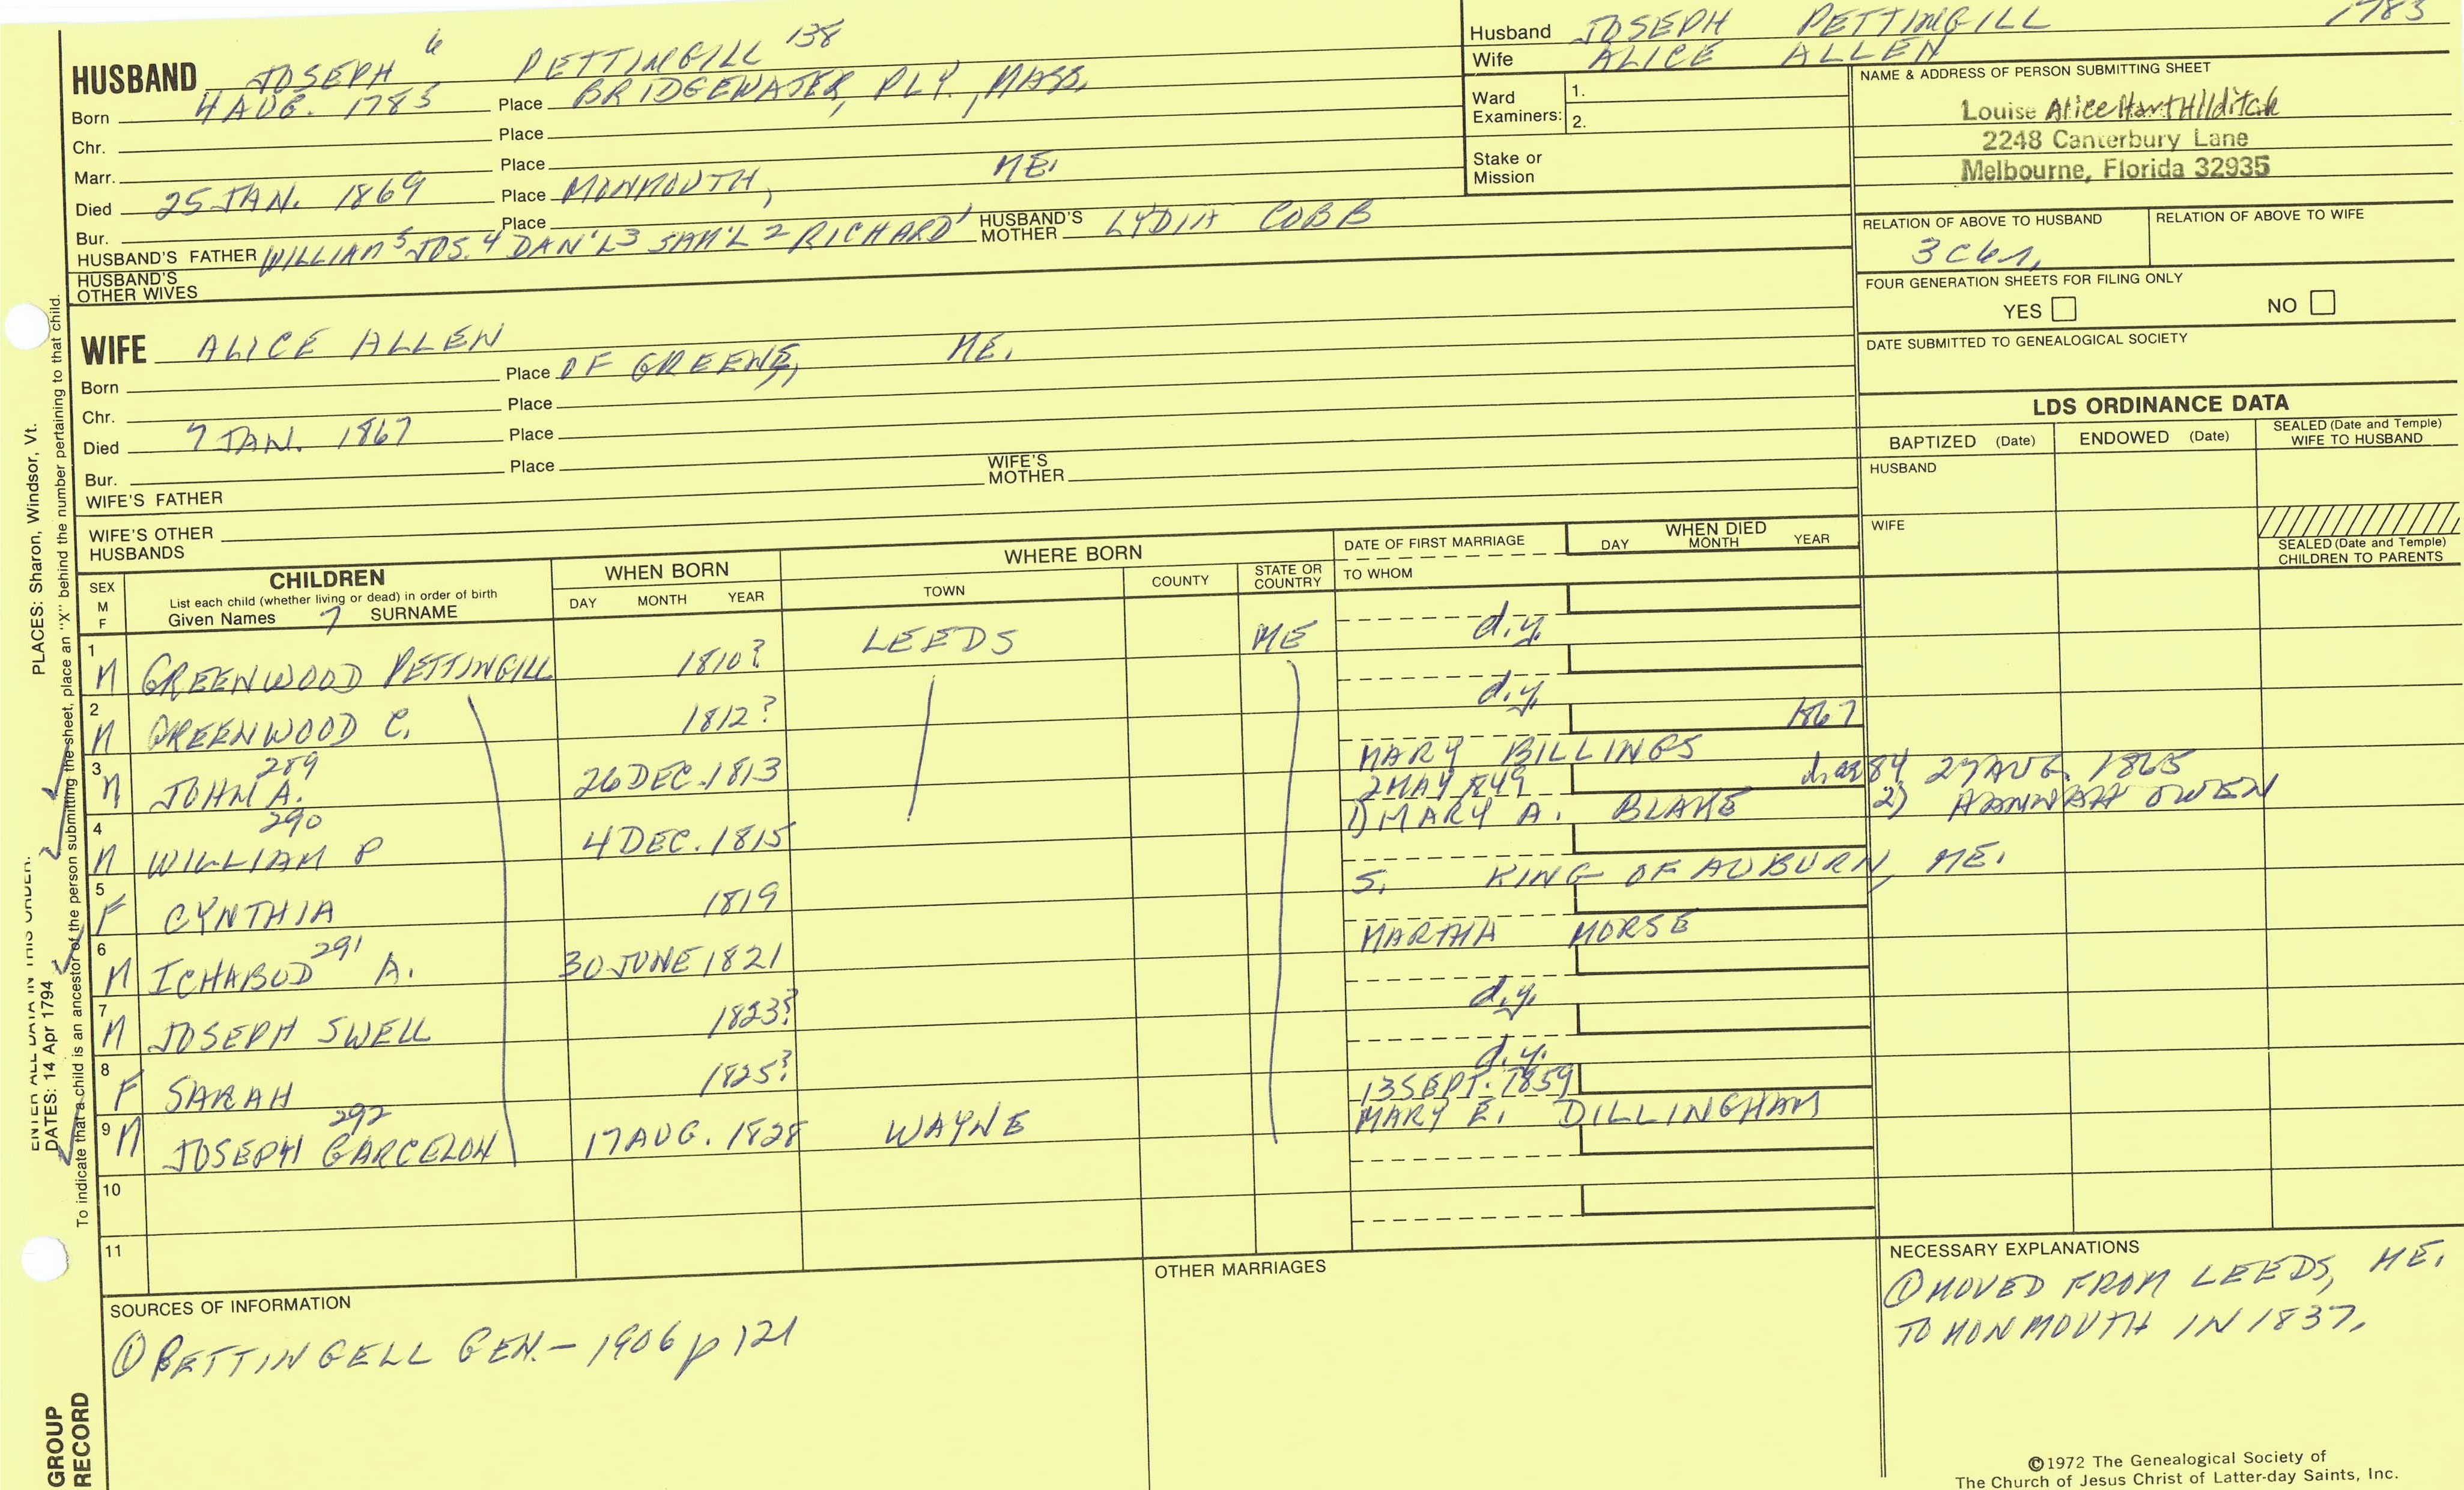 HUSBAND JOSEPH 6 PETTINGILL 138
Born 4 AUG. 1783 Place BRIDGEWATER, PLY., MASS.
Chr. Place
Marr. Place
Died 25 JAN. 1869 Place MONMOUTH, ME.
Bur. Place
HUSBAND'S FATHER WILLIAM 5 JOS. 4 DAN'L 3 SAM'L 2 RICHARD 1 HUSBAND'S MOTHER LYDIA COBB
HUSBAND'S OTHER WIVES
Husband JOSEPH PETTINGILL 1783
Wife ALICE ALLEN
Ward Examiners: 1.
2.
Stake or Mission
NAME & ADDRESS OF PERSON SUBMITTING SHEET
Louise Alice Hart Hilditch
2248 Canterbury Lane
Melbourne, Florida 32935
RELATION OF ABOVE TO HUSBAND RELATION OF ABOVE TO WIFE
3C6r.
FOUR GENERATION SHEETS FOR FILING ONLY
YES NO
DATE SUBMITTED TO GENEALOGICAL SOCIETY
WIFE ALICE ALLEN
Born Place OF GREENE, ME.
Chr. Place
Died 7 JAN. 1867 Place
Bur. Place
WIFE'S FATHER WIFE'S MOTHER
WIFE'S OTHER HUSBANDS
LDS ORDINANCE DATA
BAPTIZED (Date) ENDOWED (Date) SEALED (Date and Temple) WIFE TO HUSBAND
HUSBAND
WIFE
SEALED (Date and Temple) CHILDREN TO PARENTS
SEX M F
CHILDREN
List each child (whether living or dead) in order of birth
Given Names 7 SURNAME
WHEN BORN
DAY MONTH YEAR
WHERE BORN
TOWN COUNTY STATE OR COUNTRY
DATE OF FIRST MARRIAGE
TO WHOM
WHEN DIED
DAY MONTH YEAR
1 M GREENWOOD PETTINGILL 1810? LEEDS ME d.y.
2 M GREENWOOD C. 1812? d.y.
3 M JOHN A. 289 26 DEC. 1813 MARY BILLINGS 1867
4 M WILLIAM P 290 4 DEC. 1815 2 MAY 1849 1) MARY A. BLAKE 84 27 AUG. 1865 2) HANNAH OWEN
5 F CYNTHIA 1819 S. KING OF AUBURN, ME.
6 M ICHABOD A. 291 30 JUNE 1821 MARTHA MORSE
7 M JOSEPH SWELL 1823? d.y.
8 F SARAH 1825? d.y.
9 M JOSEPH GARCELON 292 17 AUG. 1828 WAYNE 13 SEPT. 1859 MARY E. DILLINGHAM
10
11
SOURCES OF INFORMATION
① PETTINGELL GEN. - 1906 p 121
OTHER MARRIAGES
NECESSARY EXPLANATIONS
① MOVED FROM LEEDS, ME.
TO MONMOUTH IN 1837.
©1972 The Genealogical Society of
The Church of Jesus Christ of Latter-day Saints, Inc.
PLACES: Sharon, Windsor, Vt.
ENTER ALL DATA IN THIS ORDER:
DATES: 14 Apr 1794
To indicate that a child is an ancestor of the person submitting the sheet, place an "X" behind the number pertaining to that child.
GROUP
RECORD